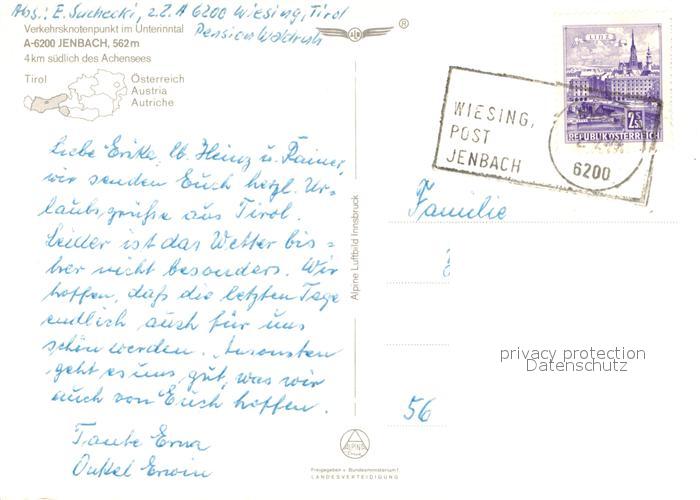 Abs.: E. Suchecki, z.Z. A 6200 Wiesing, Tirol
Pension Waldruh
Verkehrsknotenpunkt im Unterinntal
A-6200 JENBACH, 562 m
4 km südlich des Achensees
Tirol
Österreich
Austria
Autriche
®
LINZ
2.50
REPUBLIK ÖSTERREICH
WIESING,
POST
JENBACH
6200
Liebe Erika, lb. Heinz u. Rainer,
wir senden Euch herzl. Ur=
laubsgrüße aus Tirol.
Leider ist das Wetter bis=
her nicht besonders. Wir
hoffen, daß die letzten Tage
endlich auch für uns
schön werden. Ansonsten
geht es uns gut, was wir
auch von Euch hoffen.
Tante Erna
Onkel Erwin
Alpine Luftbild Innsbruck
Familie
56
privacy protection
Datenschutz
ALPINE
Freigegeben v. Bundesministerium f.
LANDESVERTEIDIGUNG